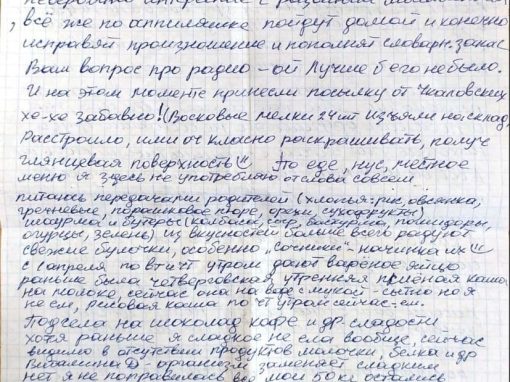 всё же по аппиляшке пойдут домой и конечно
исправят произношение и пополнят словарн. запас
Вам вопрос про радио - ой Лучше б его не было.
И на этом моменте принесли посылку от Чкаловских
хе-хе забавно! (Восковые мелки 24 шт изъяли на склад,
Расстроило, ими оч классно раскрашивать, получ
глянцевая поверхность". По еде, нус, местное
меню я здесь не употребляю от слова совсем
питаюсь передачами родителей (хлопья: рис, овсянка,
гречневые, порошковое пюре, орехи, сухофрукты)
шаурма, бутеры (колбаса, сыр, помидоры,
огурцы, зелень) из вкусностей больше всего радуют
свежие булочки, особенно "Сочники" - начинка мм"
с 1 апреля по вт и чт утром дают варёное яйцо
раньше была четверговская утренняя пшённая каша
на молоке, сейчас она на воде с мукой - сытно но я
не ем, рисовая каша по чт утрам сейчас - ем.
Подсела на шоколад кафе и др. сладости
хотя раньше я сладкое не ела вообще, сейчас
видимо в отсутствии продуктов молочки, белка и др
Витамина Д - организм заменяет сладким
нет я не поправилась все мои 50 кг остались